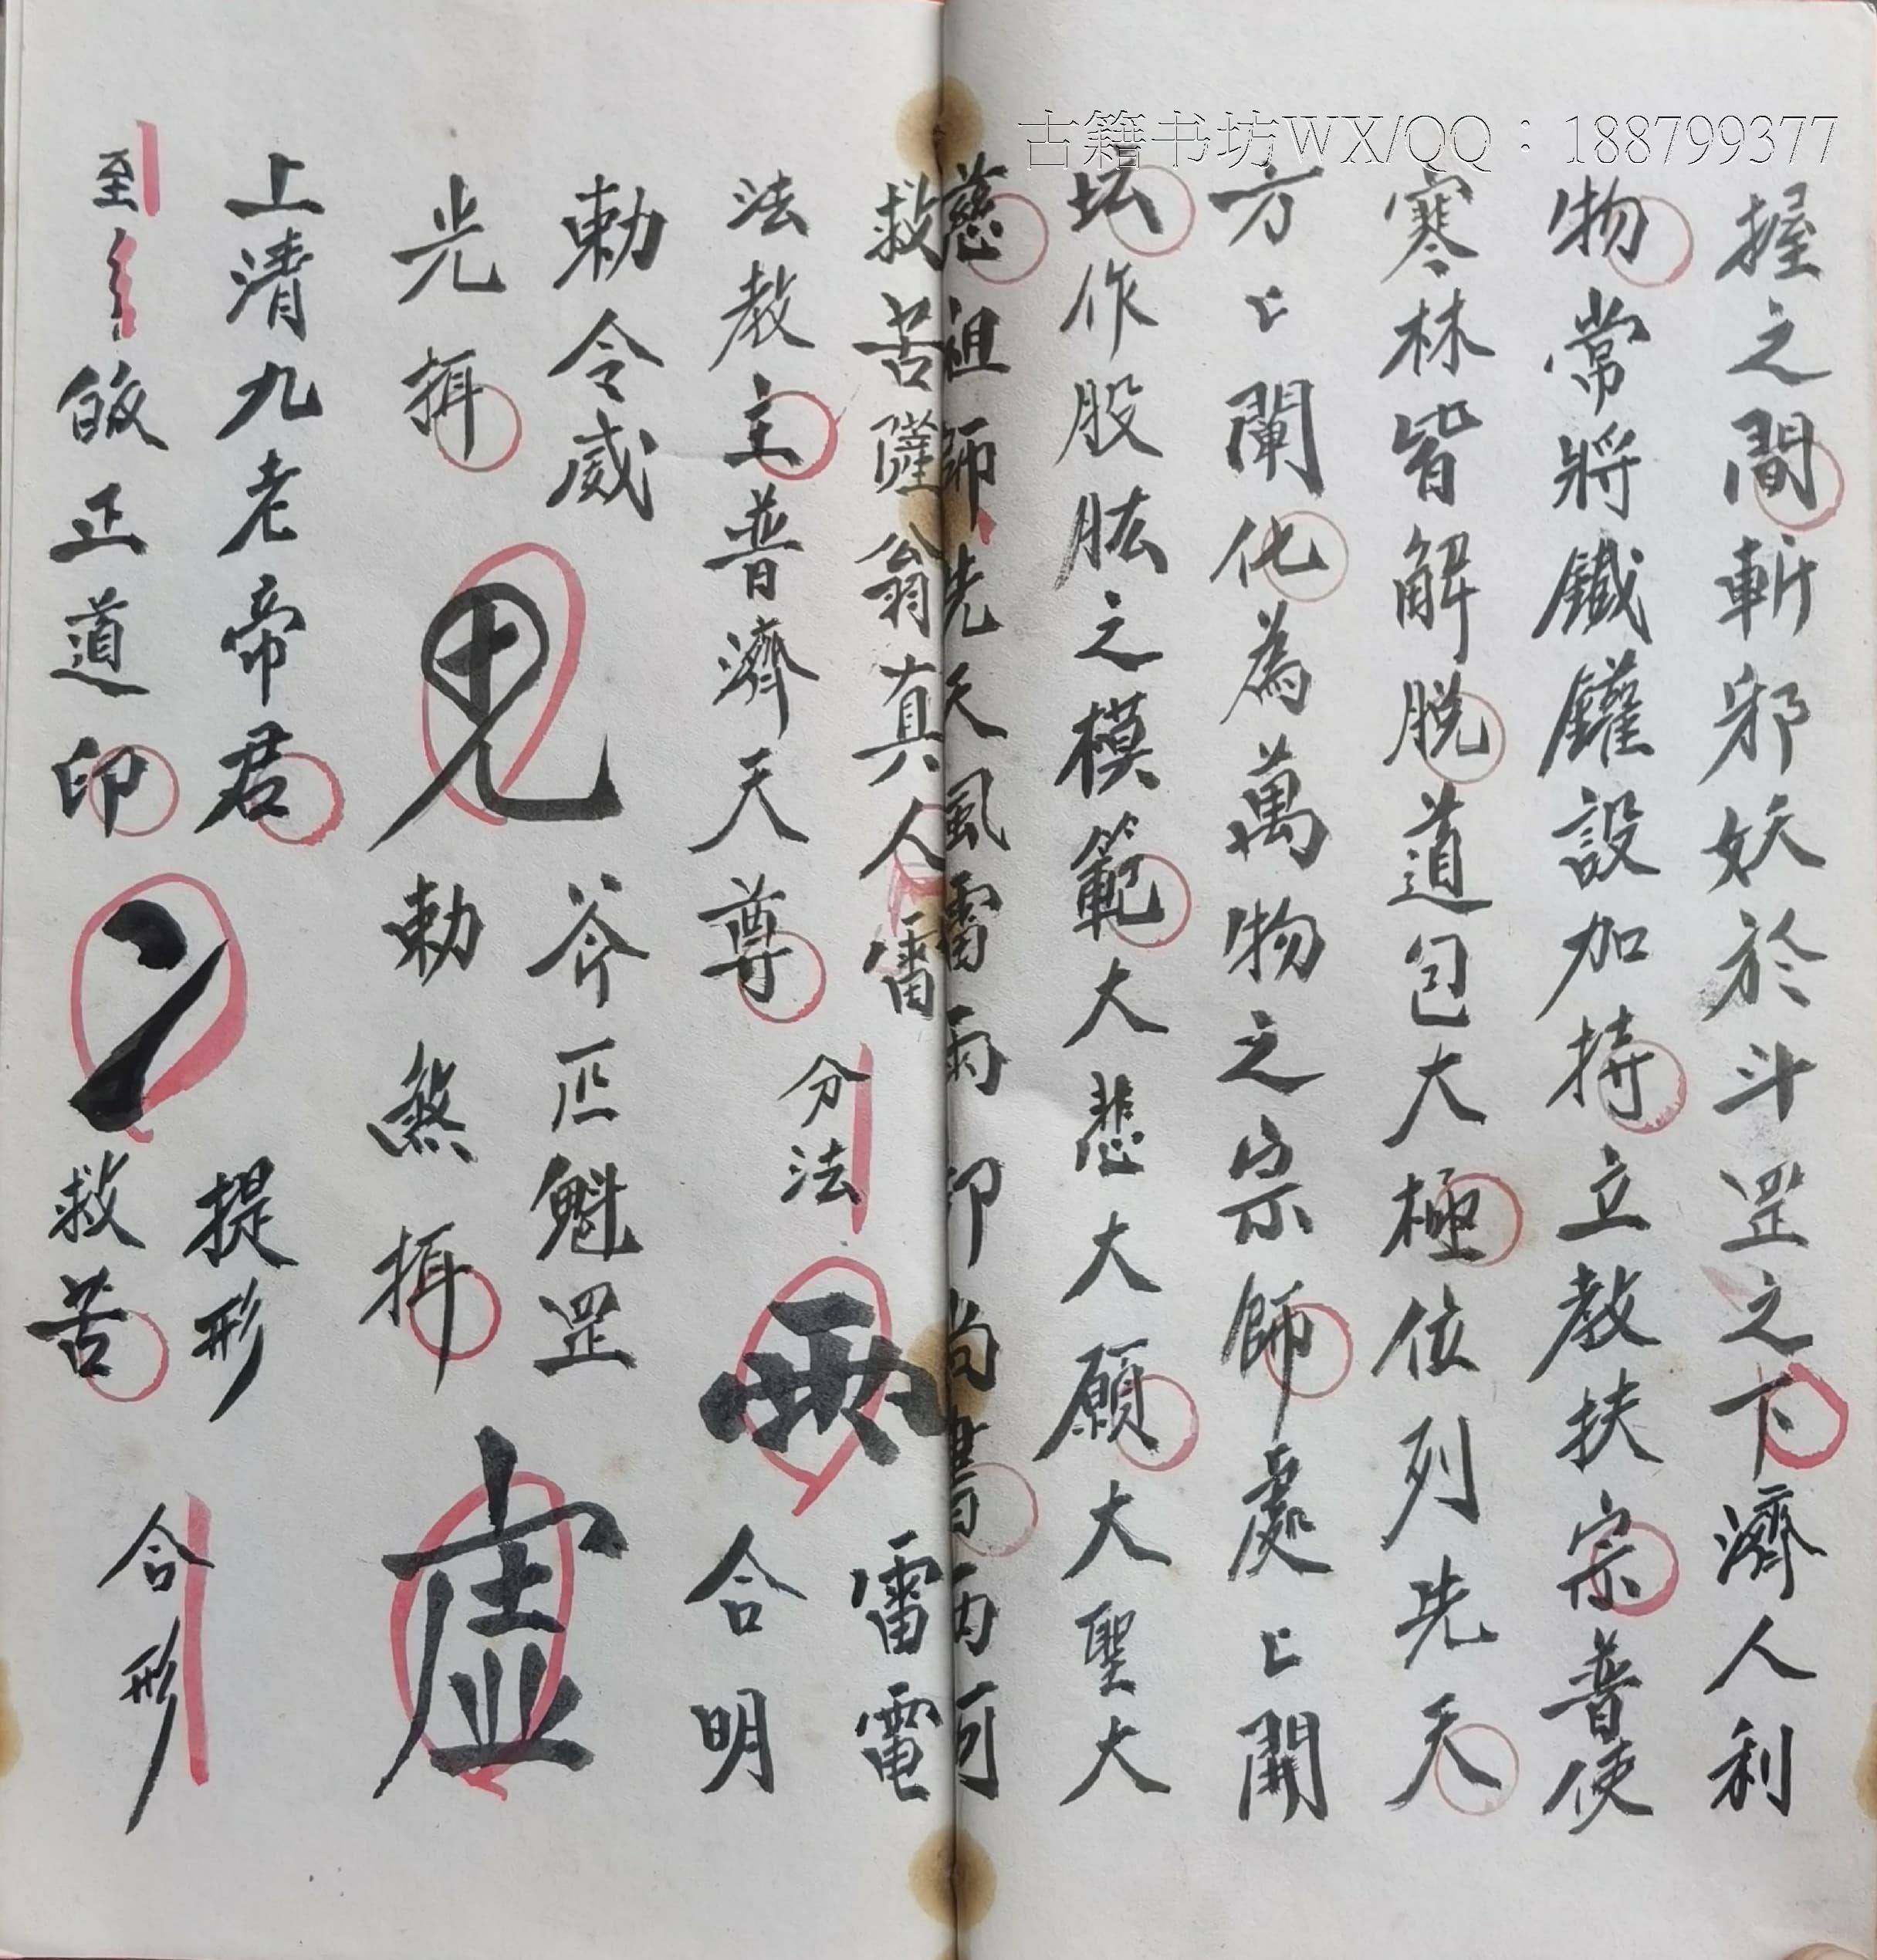 古籍书坊WX/QQ：188799377
握之間斬邪妖於斗罡之下濟人利
物常將鐵鑵設加持立教扶宗普使
寒林皆解脱道包大極位列先天
方〻闡化為萬物之宗師處〻開
坛作股肱之模範大悲大願大聖大
慈祖師先天風雷雨部尚書
救苦薩翁真人雷雷電
法教主普濟天尊
分法
合明
勅令威
斧 魁罡
光揖
勅煞揖
虚
上清九老帝君提形
至
皈正道印
救苦
合形